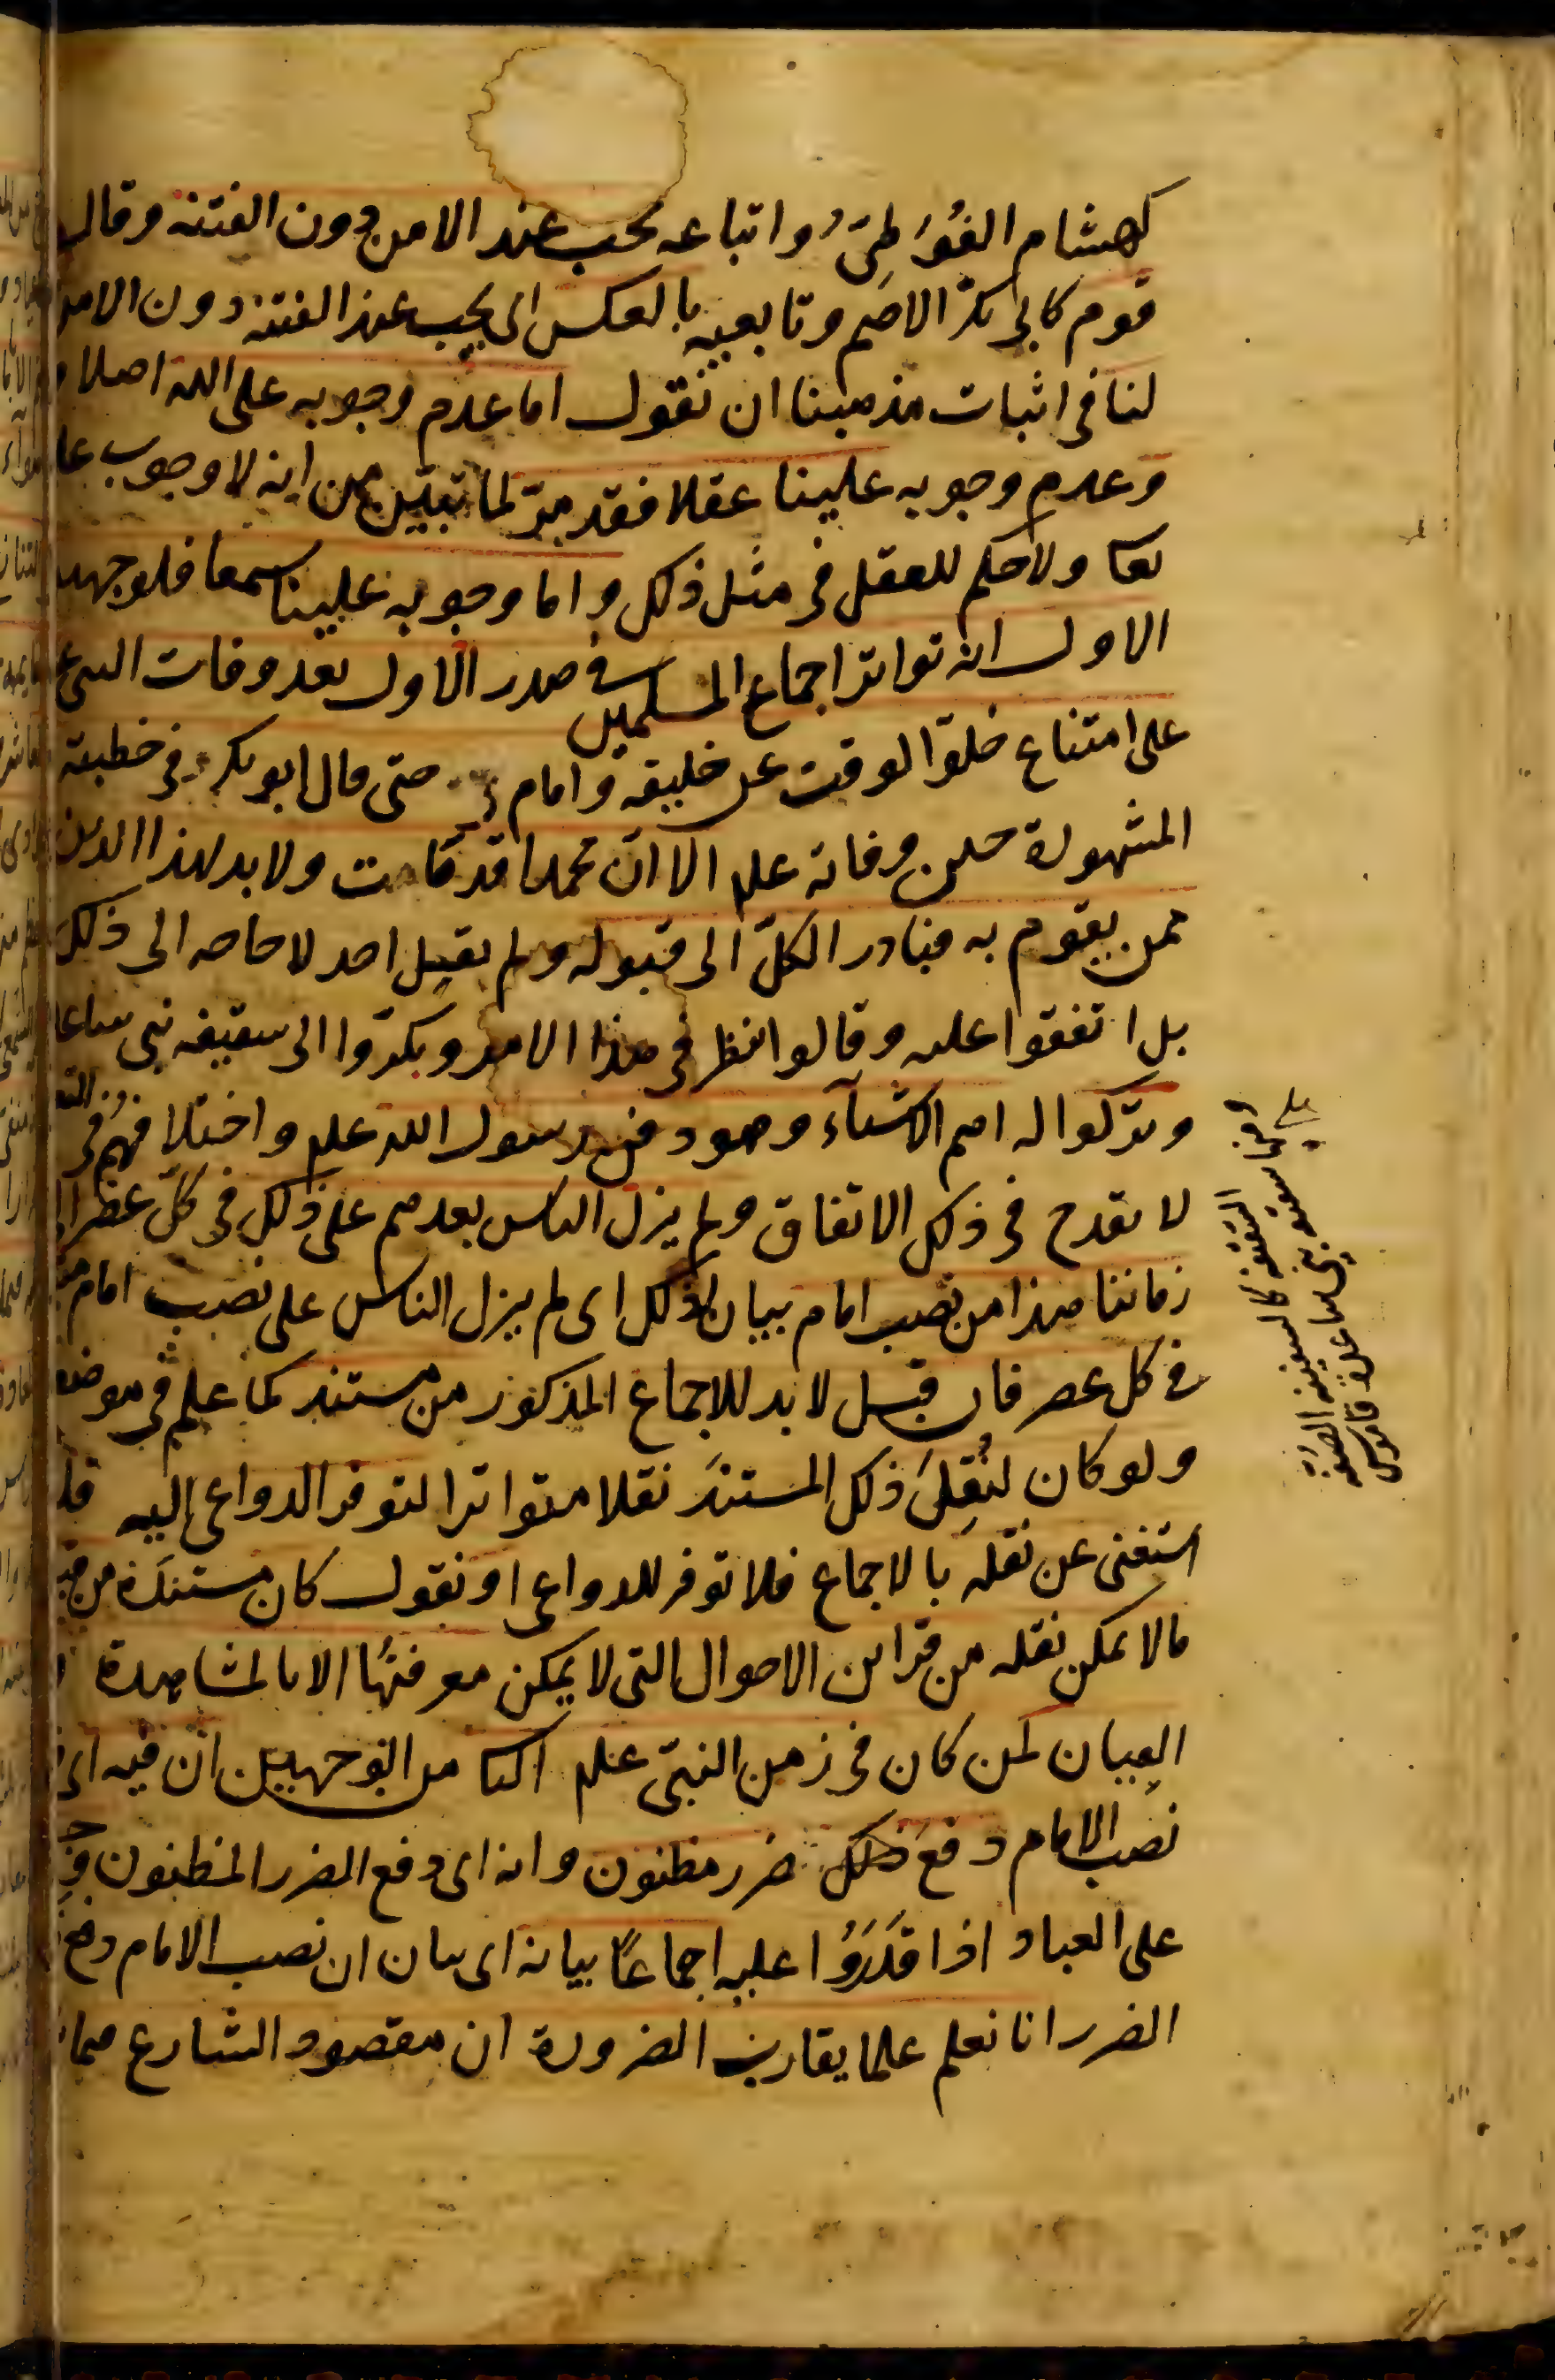 كهشام الفُوَطِىّ واتباعه يجب عند الامن دون الفتنة وقال
قوم كابى بكر الاصم وتابعيه بالعكس اى يجب عند الفتنة دون الامن
لنا فى اثبات مذهبنا ان نقول اما عدم وجوبه على الله اصلا و
وعدم وجوبه علينا عقلا فقد مرّ لما تبيّن من انه لا وجوب عليه
تعا ولا حكم للعقل فى مثل ذلك واما وجوبه علينا سمعا فلوجهين
الاول انه تواتر اجماع المسلمين فى صدر الاول بعد وفات النبى ع
على امتناع خلو الوقت عن خليفة وامام حتى قال ابو بكر فى خطبته
المشهورة حين وفاته علم الا ان محمدا قد مات ولا بد لهذا الدين
ممن يقوم به فبادر الكلّ الى قبوله ولم يقل احد لا حاجه الى ذلك
بل اتفقوا عليه وقالوا ننظر فى هذا الامر وبكّروا الى سقيفه بنى ساعد
وتركوا له اهم الاشيآء وهو دفن رسول الله علم واختلافهم فى
لا يقدح فى ذلك الاتفاق ولم يزل الناس بعدهم على ذلك فى كلّ عصر الى
زماننا هذا من نصب امام بيان لذلك اى لم يزل الناس على نصب امام
فى كل عصر فان قيل لا بد للاجماع المذكور من مستند كما علم فى موضعه
ولو كان لنُقِلَ ذلك المستند نقلا متواترا لتوفر الدواعى اليه قلنا
استغنى عن نقله بالاجماع فلا توفر للدواعى او نقول كان مستنده من قبيل
ما لا يمكن نقله من قراين الاحوال التى لا يمكن معرفتها الا بالمشاهدة و
العيان لمن كان فى زمن النبىّ علم الثانى من الوجهين ان فيه اى فى
نصب الامام دفعَ ضرر مظنون وانه اى دفع الضرر المظنون
على العباد اذا قَدَرُوا عليه اجماعًا بيانه اى بيان ان نصب الامام دفع
الضرر انا نعلم علما يقارب الضرورة ان مقصود الشارع فيما
السقيفه كالسفينه الصفة
ومنها سقيفة بنى ساعدة قاموس